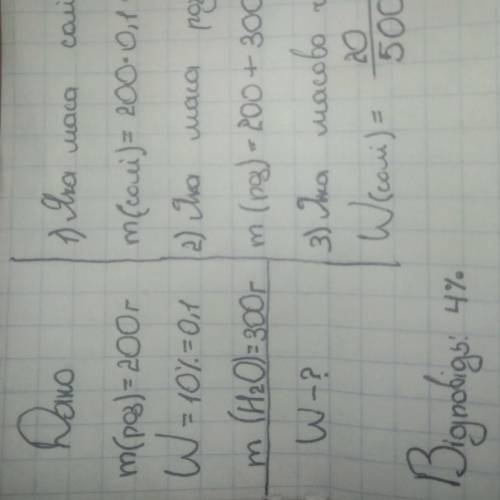 Дано
m(роз)=200г
W=10%=0,1
m(H₂O)=300г
W-?
1) Яка маса солі
m(солі)=200·0,1
2) Яка маса роз
m(роз)=200+300
3) Яка масова ч
W(солі)=20/500
Відповідь: 4%